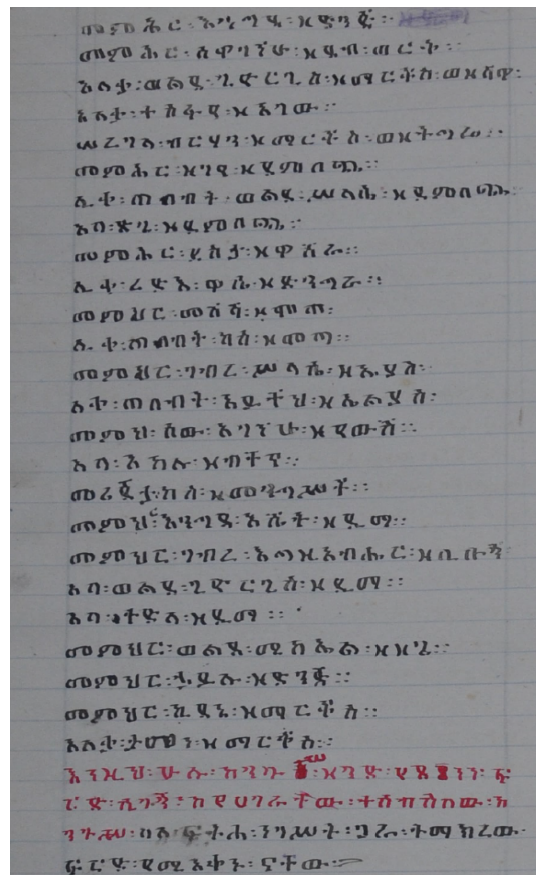 መምሕር፡ እንግዳ፡ ዘድንጇ፡
መምሕር፡ ስዋገኘሁ፡ ዘደብ፡ ወርት፡፡
አለቃ፡ ወልደ፡ ጊዮርጊስ፡ ዘማርቆስ፡ ወዘሸዋ፡
አለቃ፡ ተስፋዬ፡ ዘእገው፡፡
ሠረገላ፡ ብርሃን፡ ዘማርቆስ፡ ወዘትግሬ፡፡
መምሕር፡ ዘደምበጫ፡፡
ሊቀ፡ ጠበብት፡ ወልደ፡ ሥላሴ፡ ዘደምበጫ፡
አባ፡ ጽጌ፡ ዘደምበጫ፡፡
መምሕር፡ ዘዋሸራ፡፡
ሊቀ፡ ረድእ፡ ዋሴ፡ ዘድንግራ፡፡
መምህር፡ መሸሻ፡ ዘሞጣ፡
ሊቀ፡ ጠበብት፡ ካሰ፡ ዘሞጣ፡፡
መምህር፡ ገብረ፡ ሥላሴ፡ ዘኤልያስ፡
ሊቀ፡ ጠበብት፡ ዘኤልያስ፡
መምህ፡ ሰው፡ አገኘሁ፡ ዘደውሽ፡፡
አባ፡ አካሉ፡ ዘብቸና፡፡
መሪጌታ፡ ካሰ፡ ዘመንግሥቶ፡፡
መምህ፡ እንግዳ፡ እሸቴ፡ ዘዲማ፡፡
መምህር፡ ገብረ፡ እግዚአብሔር፡
አባ፡ ወልደ፡ ጊዮርጊስ፡ ዘዲማ፡፡
አባ፡ ታድለ፡ ዘዲማ፡፡
መምህር፡ ወልደ፡ ሚካኤል፡
መምህር፡ ኃይሉ፡ ዘድንጇ፡፡
መምህር፡ ኪዳኔ፡ ዘማርቆስ፡፡
አለቃ፡ ታመነ፡ ዘማርቆስ፡፡
እንዚህ፡ ሁሉ፡ ከንጉሥ፡ ዘንድ፡ ፍ
ርድ፡ ሊገኝ፡ ከየሀገራቸው፡ ተሰብስበው፡ ከ
ንጉሥ፡ ባለ፡ ፍትሐ፡ ነገሥት፡ ጋራ፡ ትማከረው
ፍርድ፡ የሚአቀኑ፡ ናቸው፡